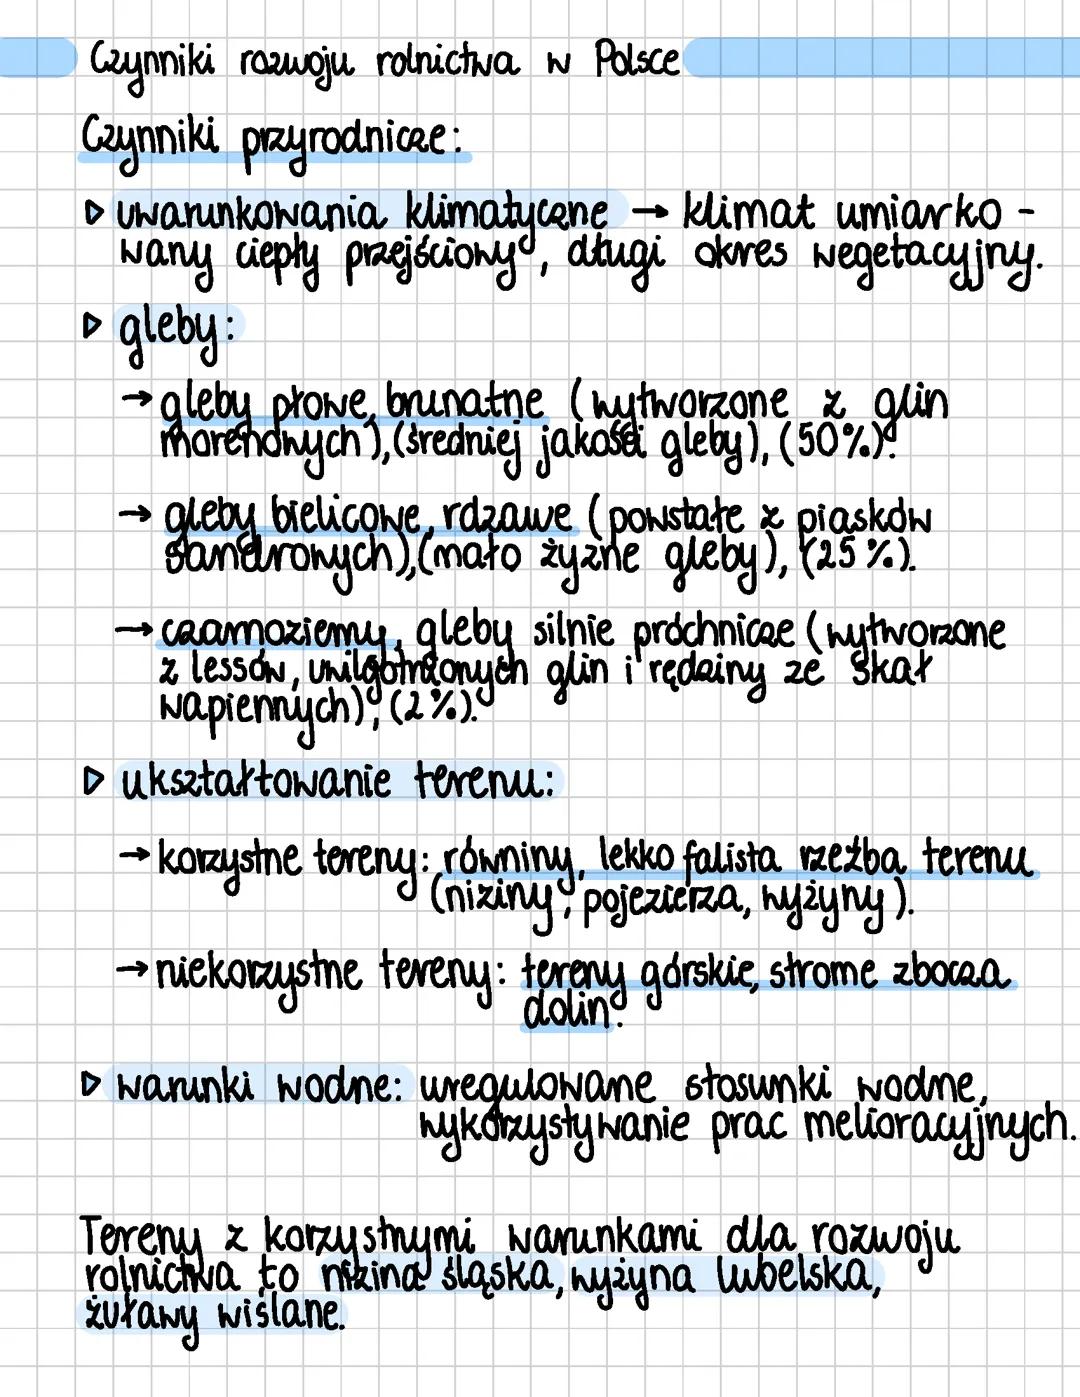 Czynniki rozwoju rolnictwa w Polsce
Czynniki przyrodnicze:
▷ uwarunkowania klimatyczne → klimat umiarko-
wany ciepły przejściowy, długi okres wegetacyjny.
▷ gleby:
→ gleby płowe, brunatne (wytworzone z glin
morenowych), (średniej jakości gleby), (50%).
→ gleby bielicowe, rdzawe (powstałe z piasków
sandrowych), (mało żyzne gleby), (25%).
→ czarnoziemy, gleby silnie próchnicze (wytworzone
z lessów, uwilgotnionych glin i rędziny ze skał
wapiennych), (2%).
▷ ukształtowanie terenu:
→ korzystne tereny: równiny, lekko falista rzeźba terenu
(niziny, pojezierza, wyżyny).
→ niekorzystne tereny: tereny górskie, strome zbocza
dolin.
▷ warunki wodne: uregulowane stosunki wodne,
wykorzystywanie prac melioracyjnych.
Tereny z korzystnymi warunkami dla rozwoju
rolnictwa to nizina śląska, wyżyna lubelska,
żuławy wiślane.